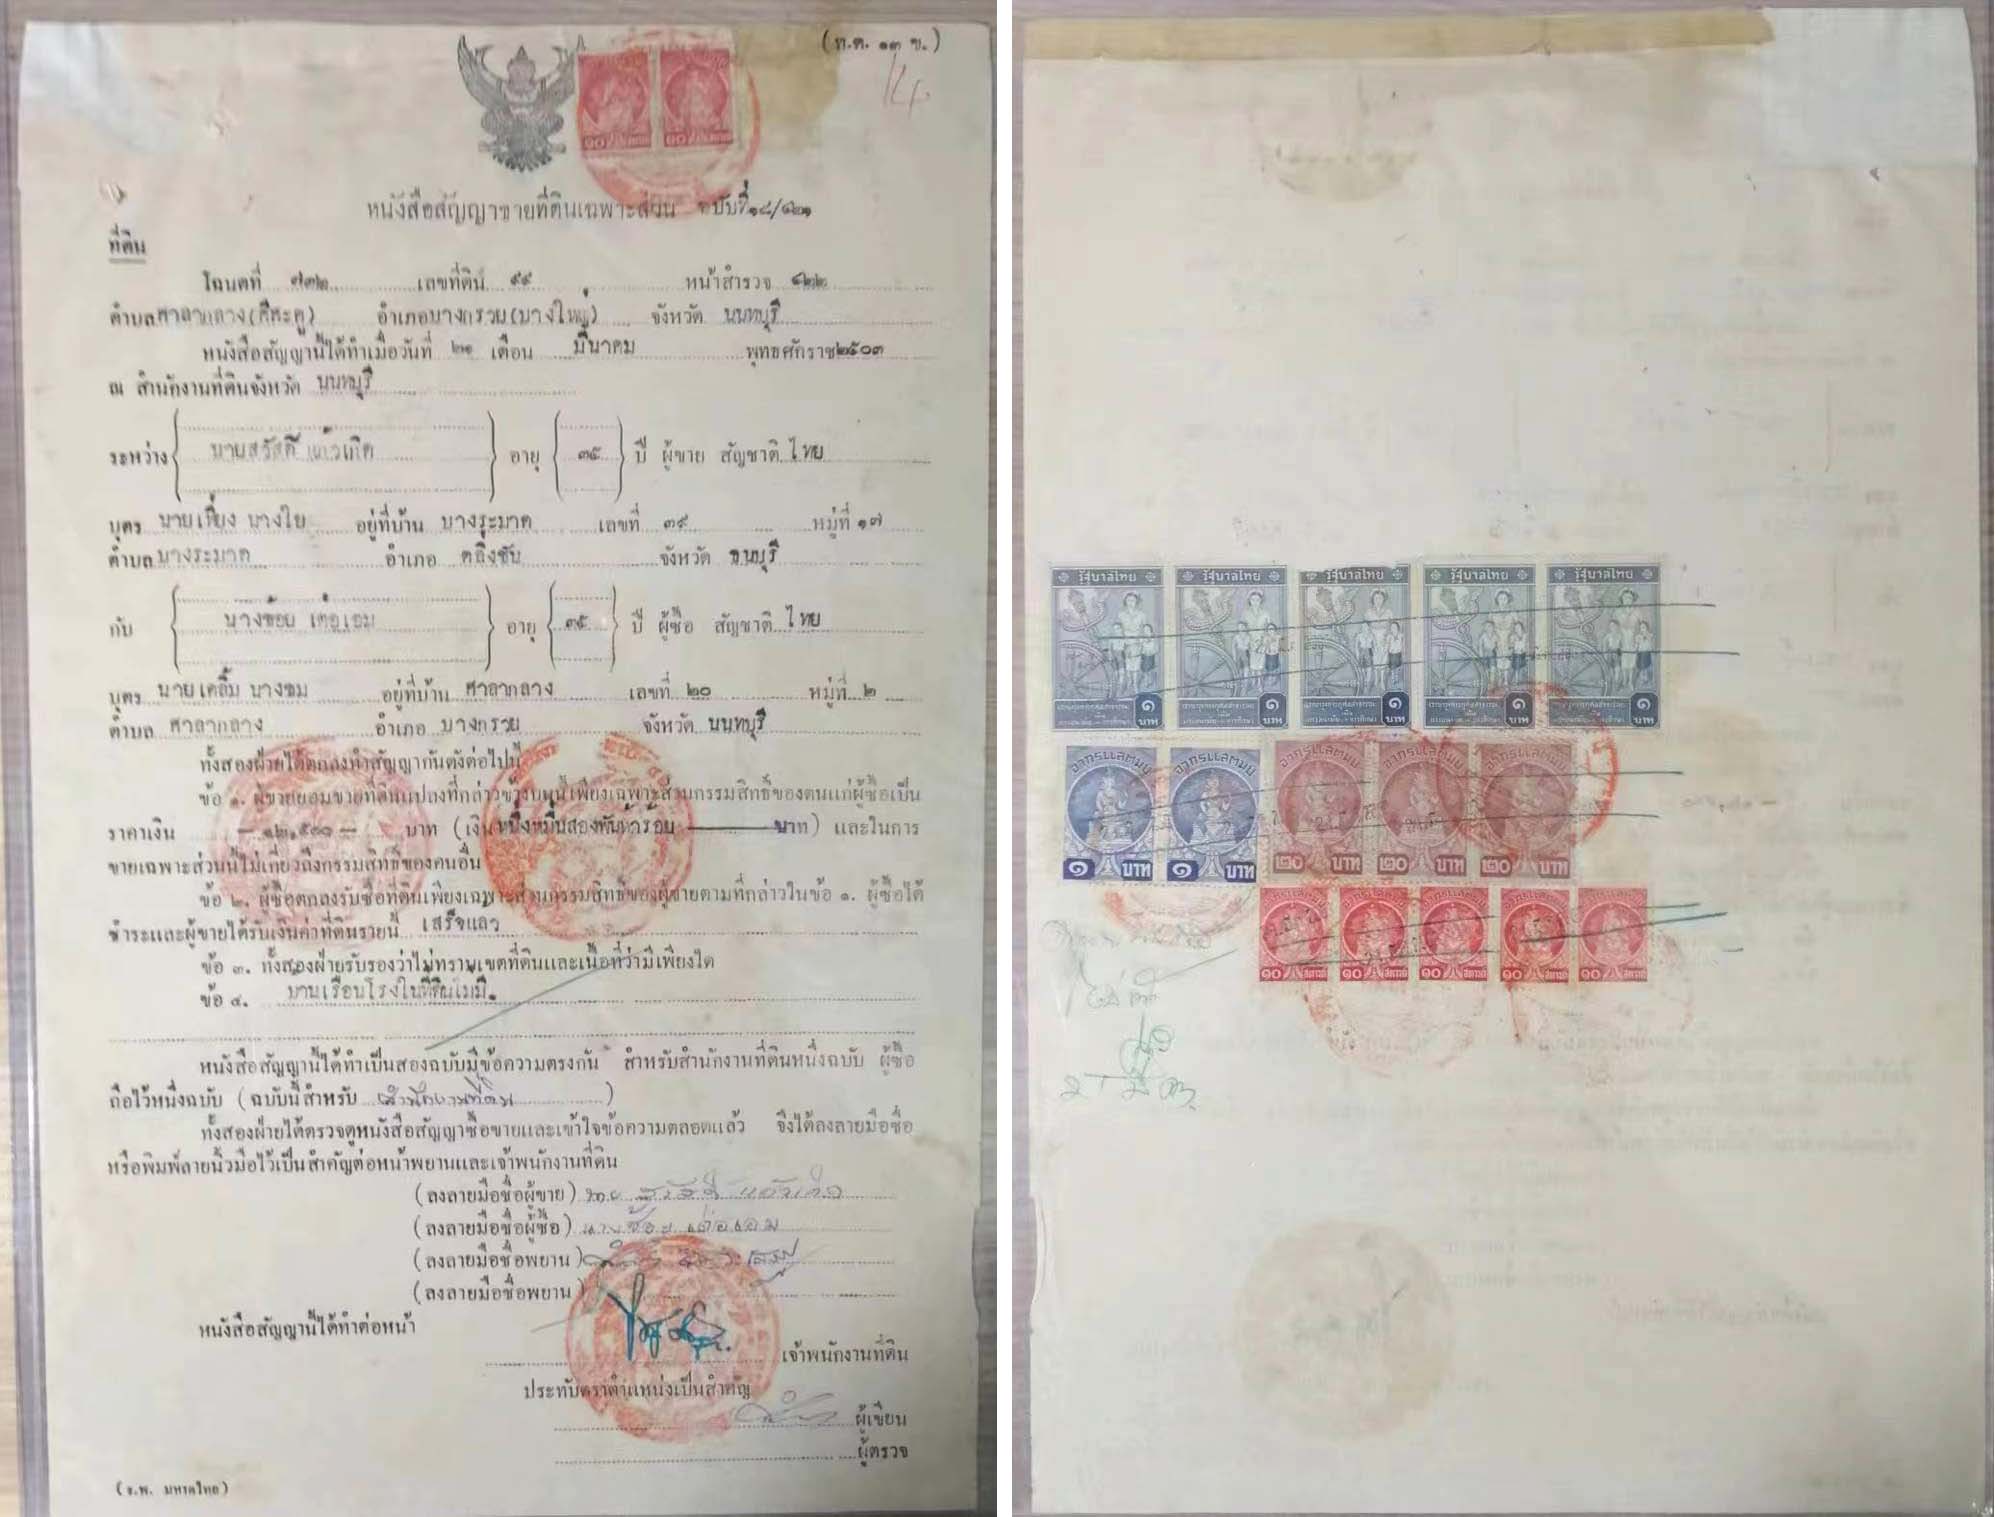 (ท.ด. ๑๓ ข.)
๑๐ สตางค์ ๑๐ สตางค์
หนังสือสัญญาขายที่ดินเฉพาะส่วน ฉบับที่
ที่ดิน
โฉนดที่ ๗๓๒ เลขที่ดิน ๕๙ หน้าสำรวจ ๔๒๒
ตำบล ศาลากลาง อำเภอ บางกรวย (บางใหญ่) จังหวัด นนทบุรี
หนังสือสัญญานี้ได้ทำเมื่อวันที่ ๒๑ เดือน มีนาคม พุทธศักราช ๒๕๐๓
ณ สำนักงานที่ดินจังหวัด นนทบุรี
ระหว่าง นายสวัสดิ์ แก้วเกิด อายุ ๓๕ ปี ผู้ขาย สัญชาติ ไทย
บุตร นายเที่ยง นางใย อยู่ที่บ้าน บางระมาด เลขที่ ๓๙ หมู่ที่ ๑๗
ตำบล บางระมาด อำเภอ ตลิ่งชัน จังหวัด ธนบุรี
กับ นางช้อย เต๋อเอม อายุ ๓๕ ปี ผู้ซื้อ สัญชาติ ไทย
บุตร นายเคลิ้ม นางชม อยู่ที่บ้าน ศาลากลาง เลขที่ ๒๐ หมู่ที่ ๒
ตำบล ศาลากลาง อำเภอ บางกรวย จังหวัด นนทบุรี
ทั้งสองฝ่ายได้ตกลงทำสัญญากันดังต่อไปนี้
ข้อ ๑. ผู้ขายยอมขายที่ดินแปลงที่กล่าวข้างบนนี้เพียงเฉพาะส่วนกรรมสิทธิ์ของตนแก่ผู้ซื้อเป็น
ราคาเงิน — ๑๒,๕๐๐ — บาท (เงิน หนึ่งหมื่นสองพันห้าร้อย บาท) และในการ
ขายเฉพาะส่วนนี้ไม่เกี่ยวถึงกรรมสิทธิ์ของคนอื่น
ข้อ ๒. ผู้ซื้อตกลงรับซื้อที่ดินเพียงเฉพาะส่วนกรรมสิทธิ์ของผู้ขายตามที่กล่าวในข้อ ๑. ผู้ซื้อได้
ชำระและผู้ขายได้รับเงินค่าที่ดินรายนี้ เสร็จแล้ว
ข้อ ๓. ทั้งสองฝ่ายรับรองว่าไม่ทราบเขตที่ดินและเนื้อที่ว่ามีเพียงใด
ข้อ ๔. บ้านเรือนโรงในที่ดินไม่มี.
หนังสือสัญญานี้ได้ทำเป็นสองฉบับมีข้อความตรงกัน สำหรับสำนักงานที่ดินหนึ่งฉบับ ผู้ซื้อ
ถือไว้หนึ่งฉบับ (ฉบับนี้สำหรับ สำนักงานที่ดิน)
ทั้งสองฝ่ายได้ตรวจดูหนังสือสัญญาซื้อขายและเข้าใจข้อความตลอดแล้ว จึงได้ลงลายมือชื่อ
หรือพิมพ์ลายนิ้วมือไว้เป็นสำคัญต่อหน้าพยานและเจ้าพนักงานที่ดิน
(ลงลายมือชื่อผู้ขาย) นาย สวัสดิ์ แก้วเกิด
(ลงลายมือชื่อผู้ซื้อ) นางช้อย เต๋อเอม
(ลงลายมือชื่อพยาน)
(ลงลายมือชื่อพยาน)
หนังสือสัญญานี้ได้ทำต่อหน้า
เจ้าพนักงานที่ดิน
ประทับตราตำแหน่งเป็นสำคัญ
ผู้เขียน
ผู้ตรวจ
(ร.พ. มหาดไทย)
รัฐบาลไทย รัฐบาลไทย รัฐบาลไทย รัฐบาลไทย รัฐบาลไทย
๑ บาท ๑ บาท ๑ บาท ๑ บาท ๑ บาท
อากรแสตมป์ อากรแสตมป์ อากรแสตมป์ อากรแสตมป์ อากรแสตมป์
๑ บาท ๑ บาท ๒๐ บาท ๒๐ บาท ๒๐ บาท
อากรแสตมป์ อากรแสตมป์ อากรแสตมป์ อากรแสตมป์ อากรแสตมป์
๑๐ สตางค์ ๑๐ สตางค์ ๑๐ สตางค์ ๑๐ สตางค์ ๑๐ สตางค์